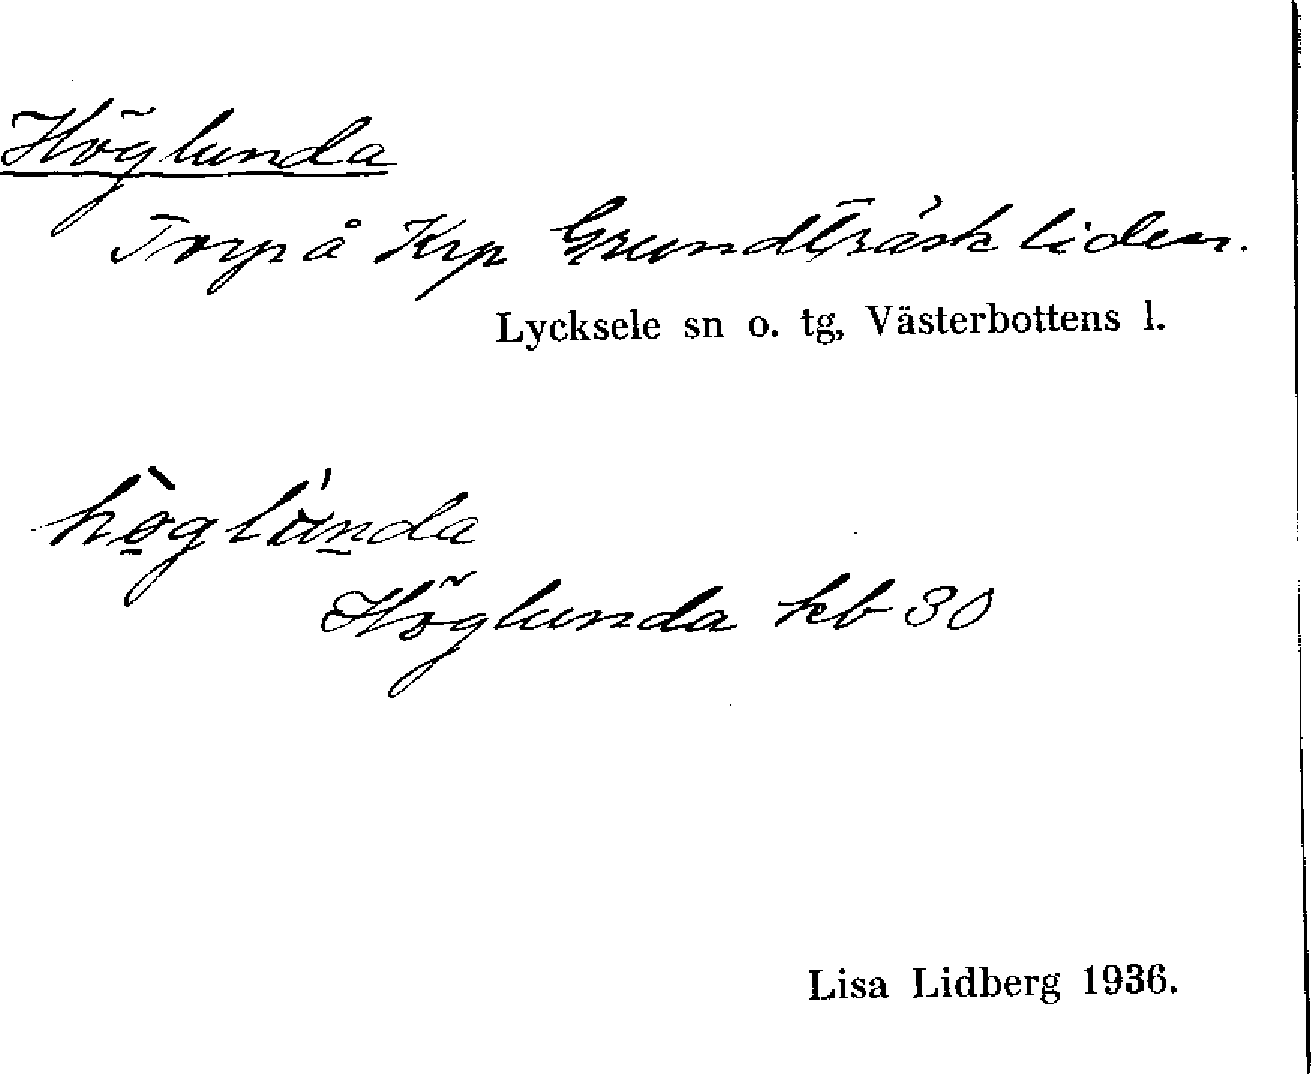 Höglunda
Torp å Krp Grundträskliden.
Lycksele sn o. tg, Västerbottens l.
Höglunda kb 30
Lisa Lidberg 1936.